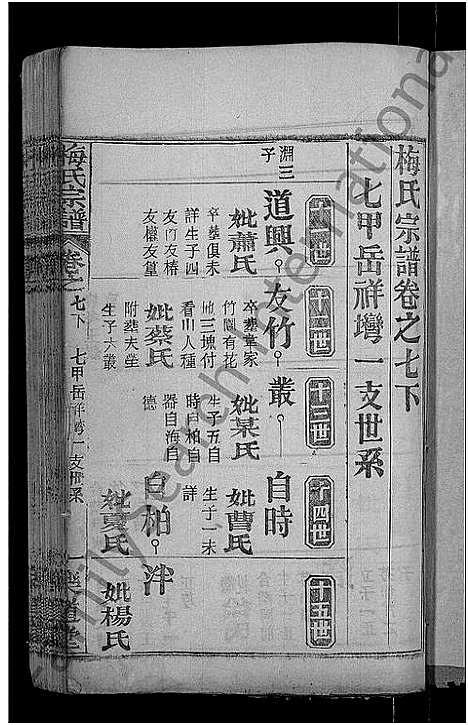 梅氏宗譜卷之七下
七甲岳祥塆一支世系
十一世
十二世
十三世
十四世
十五世
淵三子
道興
妣蕭氏
卒葬俱未
詳生子四
友竹友椿
友樓友堂
友竹
卒葬葉家
竹園有花
他三塊付
看山人種
妣蔡氏
附葬夫坐
生子大叢
叢
妣某氏
生子五自
時自柏自
器自海自
德
自時
妣曹氏
生子一未
詳
自柏
妣夏氏
泮
妣楊氏
梅氏宗譜
卷之七下
七甲岳祥塆一支世系
道堂
FamilySearch International